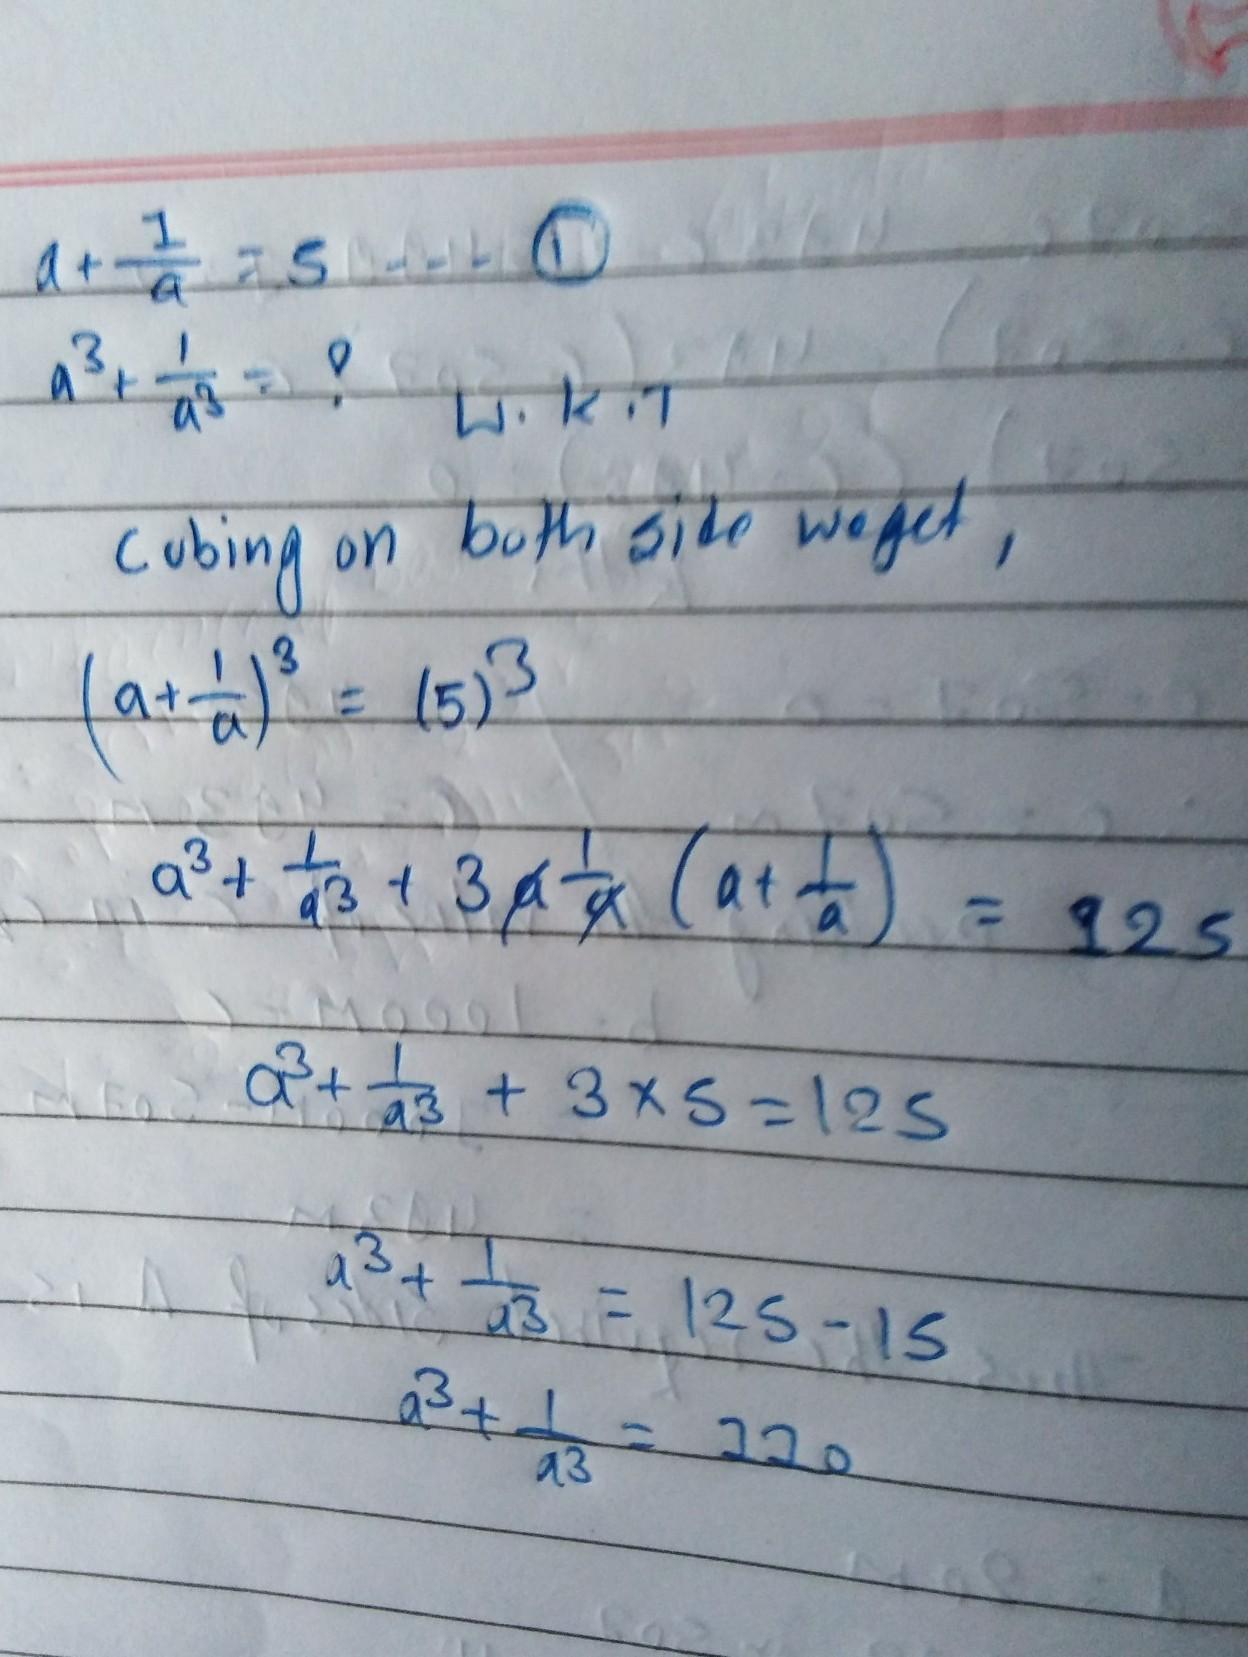 a + 1/a = 5 --- ①
a³ + 1/a³ = ?
W.K.T
Cubing on both side weget,
(a + 1/a)³ = (5)³
a³ + 1/a³ + 3 a 1/a (a + 1/a) = 125
a³ + 1/a³ + 3 × 5 = 125
a³ + 1/a³ = 125 - 15
a³ + 1/a³ = 110